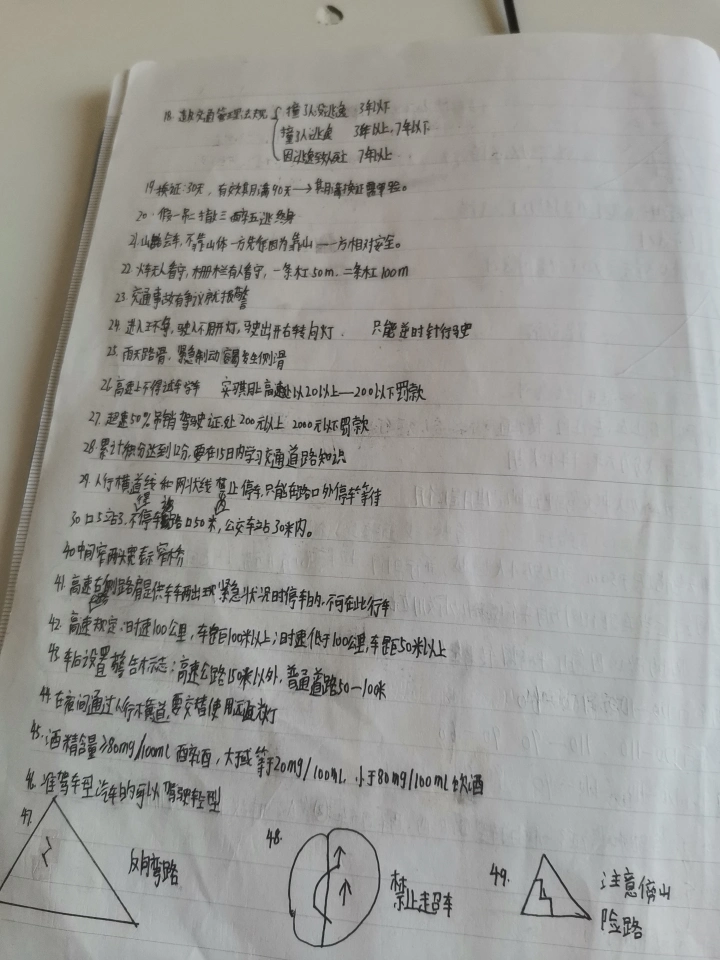 18. 道路交通管理法规 { 撞了人没逃逸 3年以下
撞了人逃逸 3年以上,7年以下
因逃逸致人死亡 7年以上
19.换证:30天,有效期满90天→期满换证
20. 假一吊二撤三醉五逃终身
21.山路会车,不靠山体一方先行因为靠山一方相对安全。
22. 火车无人看守,栅栏有人看守,一条杠50m.二条杠100m
23. 交通事故有争议就报警
24. 进入环岛,驶入不用开灯,驶出开右转向灯. 只能逆时针行驶
25. 雨天路滑,紧急制动容易发生侧滑
26.高速上不得试车学车 实习期上高速处以20以上—200以下罚款
27. 超速50%吊销驾驶证.处200元以上 2000元以下罚款
28.累计积分达到12分,要在15日内学习交通道路知识
29.人行横道线和网状线禁止停车,只能在路口外停车等待
30 口5站3.不停车 路口50米,公交车站30米内。
40中间窄两头宽表示窄桥
41.高速右侧路肩是供车辆出现紧急状况时停车的,不可在此行车
42. 高速规定:时速100公里,车距100米以上;时速低于100公里,车距50米以上
43.车后设置警告标志:高速公路150米以外,普通道路50—100米
44.在夜间通过人行横道,要交替使用远近光灯
45.酒精含量≥80mg/100ml 醉酒,大于或等于20mg/100ml.小于80mg/100ml饮酒
46.准驾车型 汽车的可以驾驶轻型
47. 反向弯路
48. 禁止超车
49. 注意傍山
险路